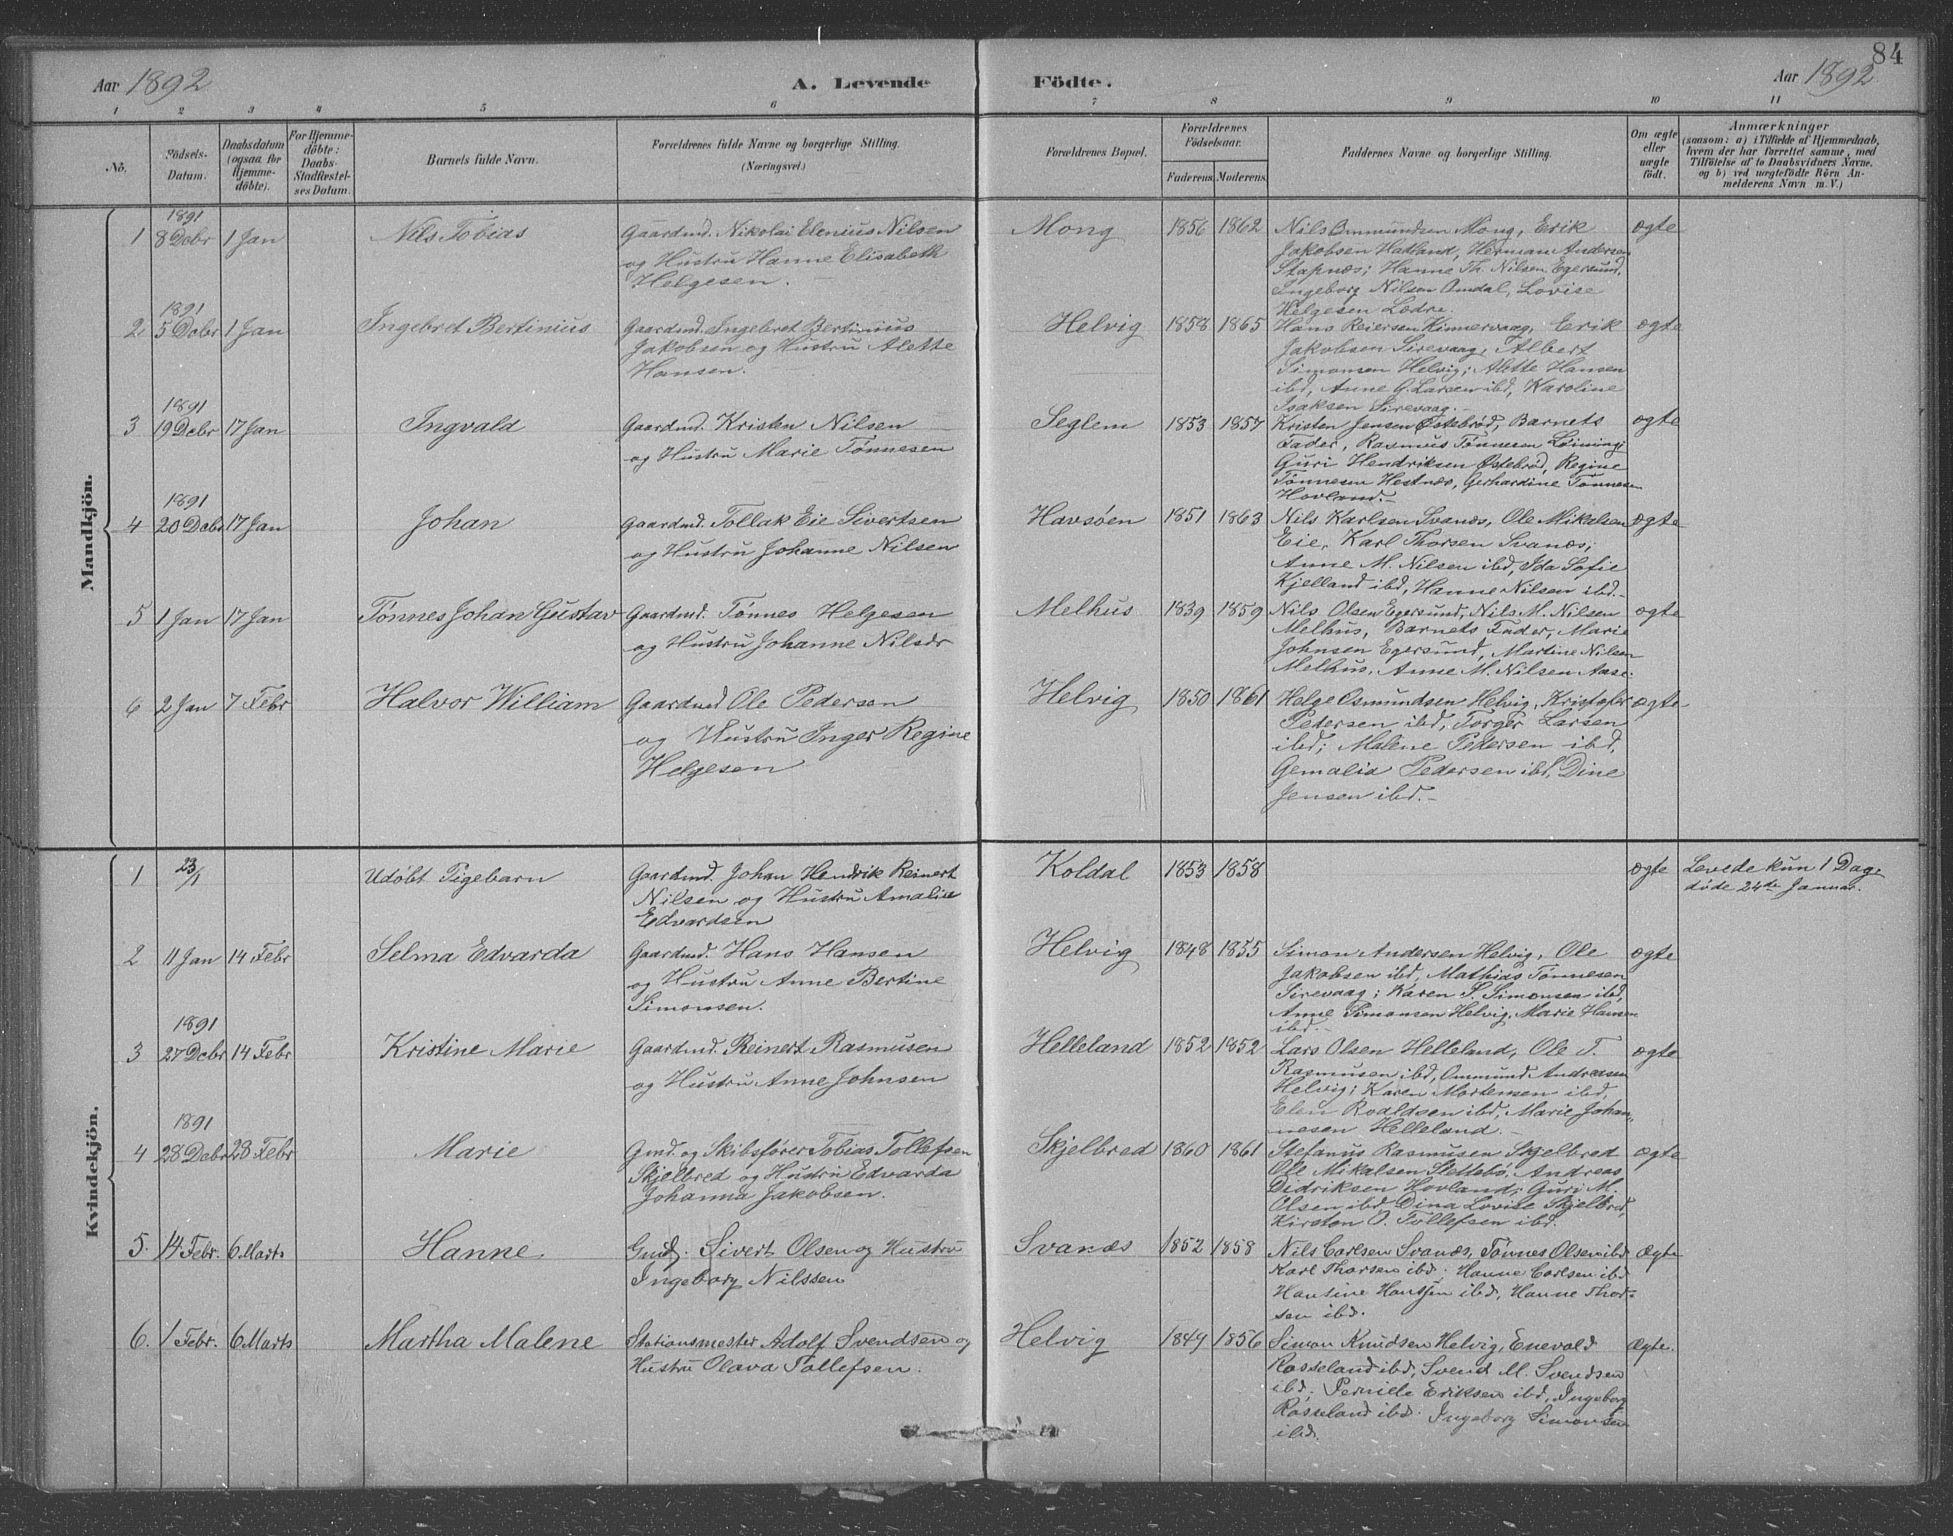 84
Aar 1892
A. Levende Födte.
Aar 1892
1 2 3 4 5 6 7 8 9 10 11
No.
Födsels-Datum.
Daabsdatum (ogsaa for Hjemmedöbte).
For Hjemmedöbte: Daabs-Stadfestelses Datum.
Barnets fulde Navn.
Forældrenes fulde Navne og borgerlige Stilling.
(Næringsvei.)
Forældrenes Bopæl.
Forældrenes Födselsaar.
Faderens. Moderens.
Faddernes Navne og borgerlige Stilling.
Om ægte eller uægte födt.
Anmærkninger
(saasom: a) i Tilfælde af Hjemmedaab,
hvem der har forrettet samme, med
Tilföielse af to Daabsvidners Navne,
og b) ved uægtefödte Börn An-
melderens Navn m. V.)
Mandkjön.
1 1891 8 Debr 1 Jan Nils Tobias
Gaardmd. Nikolai Elenius Nilsen
og Hustru Hanne Elisabeth
Helgesen.
Mong 1856 1862
Nils Ommundsen Mong, Erik
Jakobsen Hadland, Herman Andersen
Stapnæs; Hanne Th. Nilsen Egersund,
Ingeborg Nilsen Omdal, Lovise
Helgesen Lædre.
ægte
2 1891 5 Debr 1 Jan Ingebret Bertinius
Gaardmd. Ingebret Bertinius
Jakobsen og Hustru Alette
Hansen.
Helvig 1858 1865
Hans Reiersen Kinnervaag, Erik
Jakobsen Sirevaag, Albert
Simonsen Helvig; Alette Hansen
ibd, Anne G. Larsen ibd, Karoline
Isaksen Sirevaag.-
ægte
3 1891 19 Debr 17 Jan Ingvald
Gaardmd. Kristen Nilsen
og Hustru Marie Tønnesen
Seglem 1853 1857
Kristen Jensen Østebrød, Barnets
Fader, Rasmus Tønnesen Løining;
Guri Hendriksen Østebrød, Regine
Tønnesen Hestnæs, Gerhardine Tønnesen
Hovland.-
ægte
4 1891 20 Debr 17 Jan Johan
Gaardmd. Tollak Eie Sivertsen
og Hustru Johanne Nilsen
Havsøen 1851 1863
Nils Karlsen Svanæs, Ole Mikalsen
Eie, Karl Thorsen Svanæs;
Anne M. Nilsen ibd, Ida Sofie
Kjelland ibd, Hanne Nilsen ibd.-
ægte
5 1 Jan 17 Jan Tønnes Johan Gustav
Gaardmd. Tønnes Helgesen
og Hustru Johanne Nilsdr
Melhus 1839 1859
Nils Olsen Egersund, Nils M. Nilsen
Melhus, Barnets Fader, Marie
Johnsen Egersund, Martine Nilsen
Melhus, Anne M. Nilsen Aase.
ægte
6 2 Jan 7 Febr Halvor William
Gaardmd Ole Pedersen
og Hustru Inger Regine
Helgesen
Helvig 1850 1861
Helge Osmundsen Helvig, Kristofer
Pedersen ibd, Torger Larsen
ibd; Malene Pedersen ibd,
Gemalia Pedersen ibd, Dine
Jensen ibd.-
ægte
Kvindekjön.
1 23/1 Udøbt Pigebarn
Gaardmd. Johan Hendrik Reinert
Nilsen og Hustru Amalie
Edvardsen
Koldal 1853 1858
ægte
Levede kun 1 Dag,
døde 24de Januar.
2 11 Jan 14 Febr Selma Edvarda
Gaardmd. Hans Hansen
og Hustru Anne Bertine
Simonsen.
Helvig 1848 1855
Simon Andersen Helvig, Ole
Jakobsen ibd, Mathias Tønnesen
Sirevaag; Karen S. Simonsen ibd,
Anne Simonsen Helvig, Marie Hansen
ibd.-
ægte
3 1891 27 Debr 14 Febr Kristine Marie
Gaardmd. Reinert Rasmusen
og Hustru Anne Johnsen
Helleland 1852 1852
Lars Olsen Helleland, Ole T.
Rasmusen ibd, Ommund Andreasen
Helvig; Karen Mortensen ibd,
Elen Roaldsen ibd, Marie Johan-
nesen Helleland.-
ægte
4 1891 28 Debr 28 Febr Marie
Gmd. og Skibsfører Tobias Tollefsen
Skjelbred og Hustru Edvarda
Johanna Jakobsen.
Skjelbred 1860 1861
Stefanus Rasmusen Skjelbred
Ole Mikalsen Slettebø, Andreas
Didriksen Hovland; Guri M.
Olsen ibd, Dina Lovise Skjelbred,
Kirsten O. Tollefsen ibd.
ægte
5. 14 Febr. 6 Marts Hanne
Gmd. Sivert Olsen og Hustru
Ingeborg Nilssen
Svanæs 1852 1858
Nils Carlsen Svanæs, Tønnes Olsen ibd
Karl Thorsen ibd; Hanne Carlsen ibd
Hansine Hanssen ibd, Hanne Thor-
sen ibd.
Ægte
6. 1 Febr. 6 Marts Martha Malene
Stationsmester Adolf Svendsen og
Hustru Olava Tollefsen.
Helvig 1849 1856
Simon Knudsen Helvig, Enevold
Rosseland ibd, Svend M. Svendsen
ibd; Pernille Eriksen ibd, Ingeborg
Rosseland ibd. Ingeborg Simonsen
ibd.
Ægte.